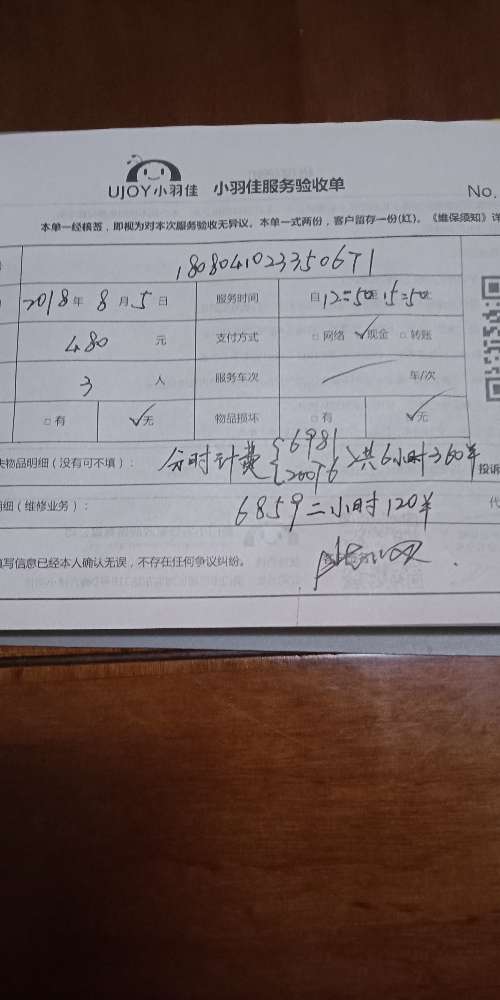 UJOY小羽佳 小羽佳服务验收单
No.
本单一经核签，即视为对本次服务验收无异议。本单一式两份，客户留存一份(红)。《维保须知》详
18080410233506T1
2018年 8月5日 服务时间 自12:50至15:50
480 元 支付方式 □网络 ✓现金 □转账
3 人 服务车次 车/次
□有 ✓无 物品损坏 □有 ✓无
失物品明细（没有可不填）： 分时计费 { 6981
20076 } 共6小时360羊 投诉
明细（维修业务）： 6859 二小时120羊 代
填写信息已经本人确认无误，不存在任何争议纠纷。